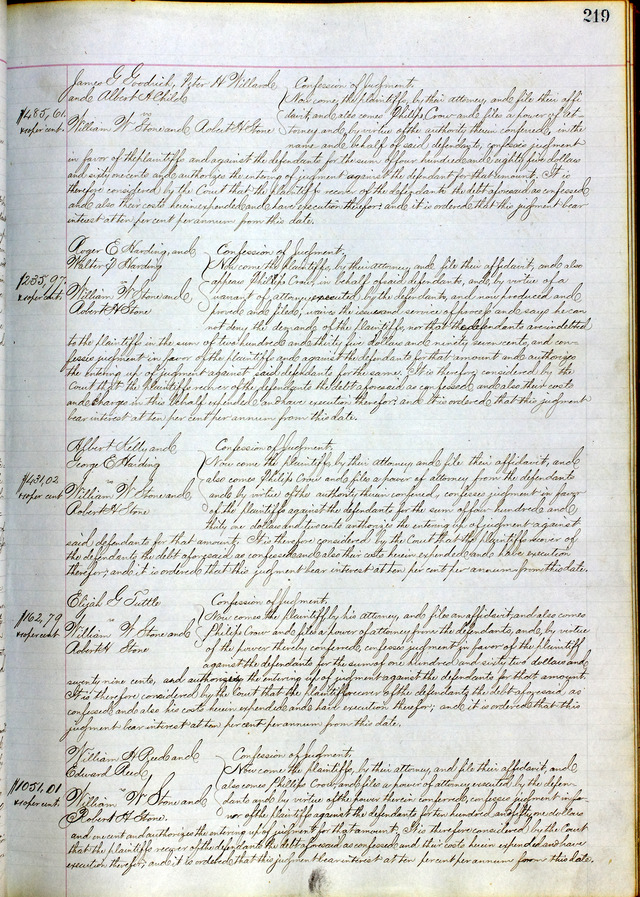 219
James G Goodrich, Peter H Willard } Confession of Judgment.
and Albert A Childs } Now come the plaintiffs, by their attorney, and file their affi-
$485,61. vs } davit, and also comes Philips Crow and files a power of at-
10 per cent. William W Stone and Robert H Stone } torney and by virtue of the authority therein conferred, in the
name and behalf of said defendants, confesses judgment
in favor of the plaintiffs and against the defendants for the sum of four hundred and eighty five dollars
and sixty one cents and authorizes the entering of judgment against the defendant for that amount. It is
therefore considered by the Court that the plaintiffs recover of the defendants the debt aforesaid as confessed
and also their costs herein expended and have execution therefor; and it is ordered that this judgment bear
interest at ten per cent per annum from this date.
Roger E Harding, and } Confession of Judgment,
Walter D Harding } Now come the plaintiffs, by their attorney, and file their affidavit, and also
$235,97. vs } appears Philips Crow, in behalf of said defendants, and, by virtue of a
10 per cent. William W Stone and } warant of attorney executed by the defendants, and now produced and
Robert H Stone } proved and filed, waives the issue and service of process and says he can
not deny the demands of the plaintiffs, nor that the defendants are indebted
to the plaintiffs in the sum of two hundred and thirty five dollars and ninety seven cents, and con-
fesses judgment in favor of the plaintiffs and against the defendants for that amount and authorizes
the entering up of judgment against said defendants for the same. It is therefore considered by the
Court that the plaintiffs recover of the defendants the debt aforesaid as confessed and also their costs
and charges in this behalf expended and have execution therefor; and it is ordered that this judgment
bear interest at ten per cent per annum from this date.
Albert Kelly and } Confession of Judgment,
George E Harding } Now come the plaintiffs, by their attorney, and file their affidavit, and
$431,02 vs } also comes Philips Crow and files a power of attorney from the defendants
10 per cent William W Stone and } and by virtue of the authority therein conferred, confesses judgment in favor
Robert H Stone } of the plaintiffs against the defendants for the sum of four hundred and
thirty one dollars and two cents authorizes the entering up of judgment against
said defendants for that amount. It is therefore considered by the Court that the plaintiffs recover of
the defendants the debt aforesaid as confessed and also their costs herein expended and have execution
therefor; and it is ordered that this judgment bear interest at ten per cent per annum from this date.
Elijah G Tuttle } Confession of Judgment,
$162,79 vs } Now comes the plaintiff, by his attorney, and files an affidavit, and also comes
10 per cent William W Stone and } Philips Crow and files a power of attorney from the defendants, and, by virtue
Robert H Stone } of the power thereby conferred, confesses judgment in favor of the plaintiff
against the defendants for the sum of one hundred and sixty two dollars and
seventy nine cents, and authorizes the entering up of judgment against the defendants for that amount.
It is therefore considered by the Court that the plaintiff recover of the defendants the debt aforesaid, as
confessed and also his costs herein expended and have execution therefor; and it is ordered that this
judgment bear interest at ten per cent per annum from this date.
William H Reed and } Confession of Judgment,
Edward Reed } Now come the plaintiffs, by their attorney, and file their affidavit, and
$1051,01 vs } also comes Philips Crow, and files a power of attorney executed by the defen-
10 per cent William W Stone and } dants and by virtue of the power therein conferred, confesses judgment in fa-
Robert H Stone. } vor of the plaintiffs against the defendants for ten hundred and fifty one dollars
and one cent and authorizes the entering up of judgment for that amount. It is therefore considered by the Court
that the plaintiffs recover of the defendants the debt aforesaid as confessed and their costs herein expended and have
execution therefor; and it is ordered that this judgment bear interest at ten per cent per annum from this date.